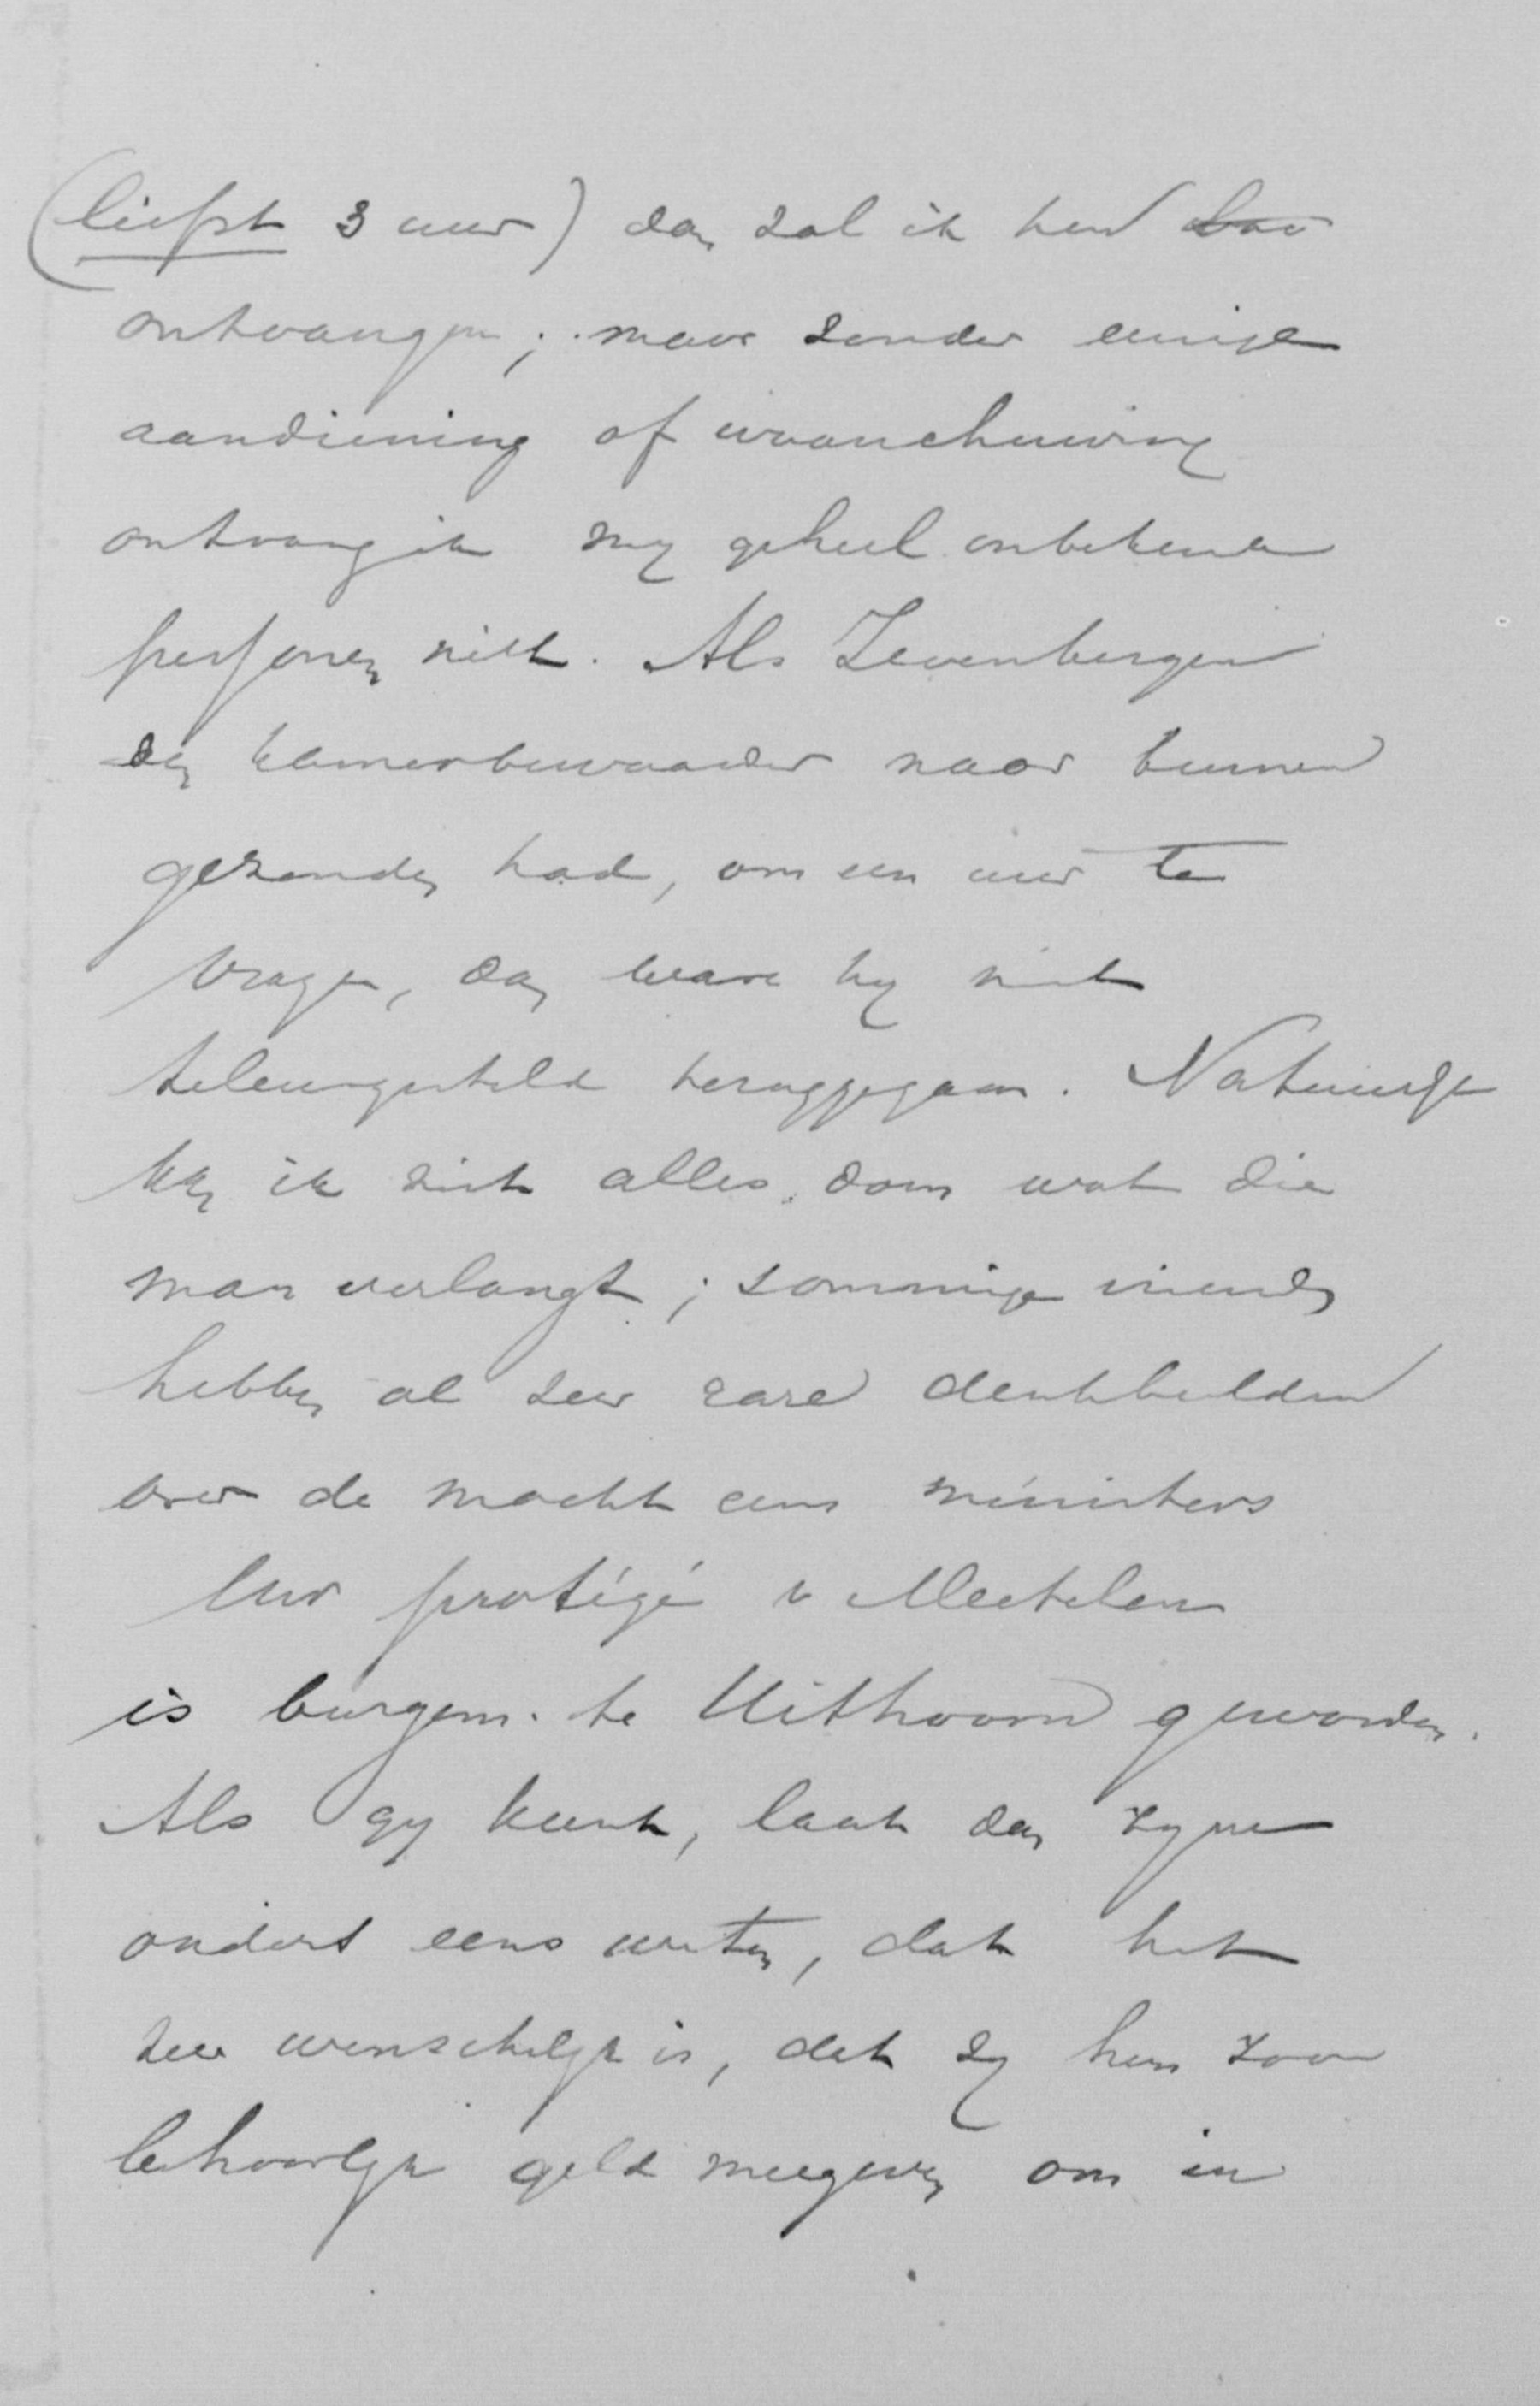 (liefst 3 uur) dan zal ik hem
ontvangen; maar zonder eenige
aandiening of waarschuwing
ontvang ik my geheel onbekende
personen niet. Als Zevenbergen
den kamerbewaarder naar binnen
gezonden had, om een uur te
vragen, dan ware hy niet
teleurgesteld teruggegaan. Natuurlyk
kan ik niet alles doen wat die
man verlangt; sommige vriends
hebben al zeer rare denkbeelden
over de macht eens ministers
Uw protégé v Meetelen
is burgem. te Uithoorn geworden.
Als gy kunt, laat dan zyne
ouders eens weten, dat het
zeer wenschelyk is, dat zy hun zoon
behoorlyk geld meegeven om in